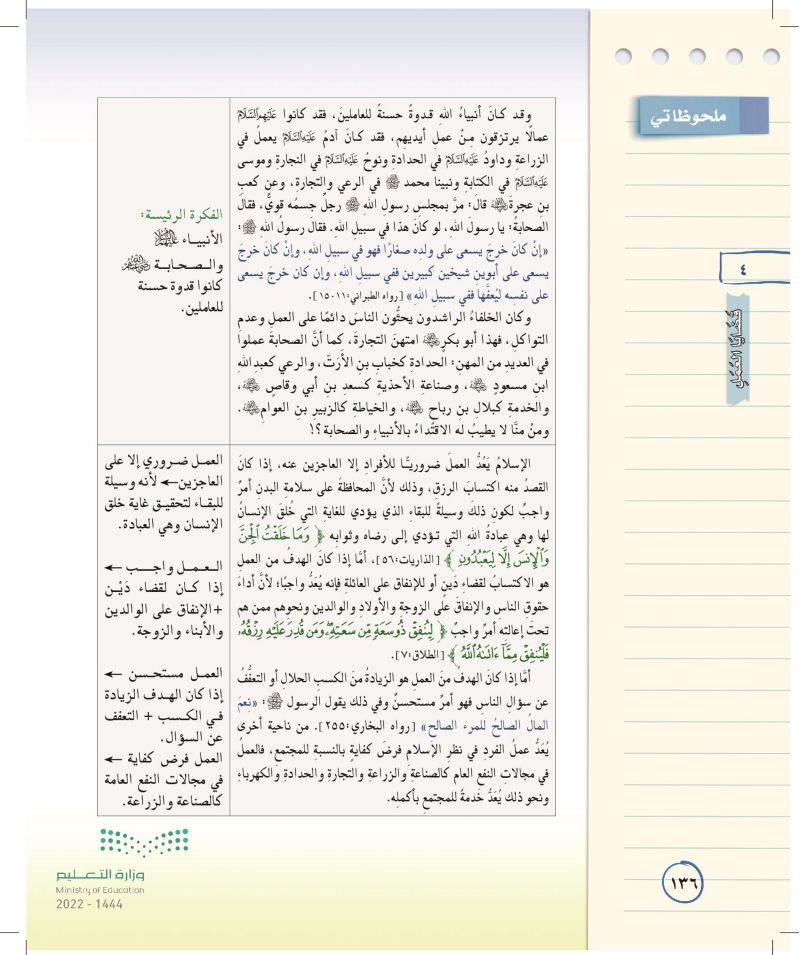 ملحوظاتي
٤
قضايا العمل
وقد كانَ أنبياءُ اللهِ قدوةً حسنةً للعاملين، فقد كانوا عَلَيْهِمُ السَّلَامُ
عمالًا يرتزقون مِنْ عملِ أيديهم، فقد كانَ آدمُ عَلَيْهِ السَّلَامُ يعملُ في
الزراعةِ وداودُ عَلَيْهِ السَّلَامُ في الحدادةِ ونوحُ عَلَيْهِ السَّلَامُ في النجارةِ وموسى
عَلَيْهِ السَّلَامُ في الكتابةِ ونبينا محمد ﷺ في الرعي والتجارةِ، وعن كعبِ
بن عجرةَ رضي الله عنه قال: مرَّ بمجلسِ رسولِ اللهِ ﷺ رجلٌ جسمُه قويٌّ، فقالَ
الصحابة: يا رسولَ اللهِ، لو كانَ هذا في سبيلِ اللهِ. فقالَ رسولُ اللهِ ﷺ:
«إنْ كانَ خرجَ يسعى على ولدِه صغارًا فهو في سبيلِ اللهِ، وإنْ كانَ خرجَ
يسعى على أبوينِ شيخينِ كبيرينِ ففي سبيلِ اللهِ، وإن كان خرجَ يسعى
على نفسِه ليُعفَّها ففي سبيلِ اللهِ» [رواه الطبراني:١٥٠١١].
وكان الخلفاءُ الراشدون يحثُّون الناسَ دائمًا على العملِ وعدمِ
التواكلِ، فهذا أبو بكرٍ رضي الله عنه امتهنَ التجارةَ، كما أنَّ الصحابةَ عملوا
في العديدِ من المهنِ: الحدادةِ كخبابِ بنِ الأرَتِّ، والرعي كعبدِاللهِ
ابنِ مسعودٍ رضي الله عنه، وصناعةِ الأحذيةِ كسعدِ بنِ أبي وقاصٍ رضي الله عنه،
والخدمةِ كبلالِ بنِ رباحٍ رضي الله عنه، والخياطةِ كالزبيرِ بنِ العوامِ رضي الله عنه.
ومنْ منَّا لا يطيبُ له الاقتداءُ بالأنبياءِ والصحابة؟!
الفكرة الرئيسة:
الأنبياء عليهم السلام
والصحابة رضي الله عنهم
كانوا قدوة حسنة
للعاملين.
الإسلامُ يَعُدُّ العملَ ضروريًّا للأفرادِ إلا العاجزين عنه، إذا كانَ
القصدُ منه اكتسابَ الرزقِ، وذلك لأنَّ المحافظةَ على سلامةِ البدنِ أمرٌ
واجبٌ لكونِ ذلكَ وسيلةً للبقاءِ الذي يؤدي للغايةِ التي خُلقَ الإنسانُ
لها وهي عبادةُ اللهِ التي تـؤدي إلى رضاه وثوابه ﴿ وَمَا خَلَقْتُ ٱلْجِنَّ
وَٱلْإِنسَ إِلَّا لِيَعْبُدُونِ ﴾ [الذاريات:٥٦]، أمَّا إذا كانَ الهدفُ من العملِ
هو الاكتسابُ لقضاءِ دَينٍ أو للإنفاقِ على العائلةِ فإنه يُعَدُّ واجبًا؛ لأنَّ أداءَ
حقوقِ الناسِ والإنفاقَ على الزوجةِ والأولادِ والوالدينِ ونحوِهم ممن هم
تحتَ إعالتِه أمرٌ واجبٌ ﴿ لِيُنفِقْ ذُو سَعَةٍ مِّن سَعَتِهِۦ وَمَن قُدِرَ عَلَيْهِ رِزْقُهُۥ
فَلْيُنفِقْ مِمَّآ ءَاتَىٰهُ ٱللَّهُ ﴾ [الطلاق:٧].
أمَّا إذا كانَ الهدفُ منَ العملِ هو الزيادةُ منَ الكسبِ الحلالِ أو التعفُّفُ
عن سؤالِ الناسِ فهو أمرٌ مستحسنٌ وفي ذلك يقول الرسول ﷺ: «نِعمَ
المالُ الصالحُ للمرءِ الصالحِ» [رواه البخاري:٢٥٥]. من ناحيةٍ أخرى
يُعَدُّ عملُ الفردِ في نظرِ الإسلامِ فرضَ كفايةٍ بالنسبةِ للمجتمعِ، فالعملُ
في مجالاتِ النفعِ العام كالصناعةِ والزراعةِ والتجارةِ والحدادةِ والكهرباءِ
ونحوِ ذلك يُعَدُّ خدمةً للمجتمعِ بأكملِه.
العمل ضروري إلا على
العاجزين← لأنه وسيلة
للبقاء لتحقيق غاية خلق
الإنسان وهي العبادة.
العمل واجب ←
إذا كان لقضاء دَيْن
+الإنفاق على الوالدين
والأبناء والزوجة.
العمل مستحسن ←
إذا كان الهدف الزيادة
في الكسب + التعفف
عن السؤال.
العمل فرض كفاية ←
في مجالات النفع العامة
كالصناعة والزراعة.
وزارة التعليم
Ministry of Education
2022 - 1444
١٣٦